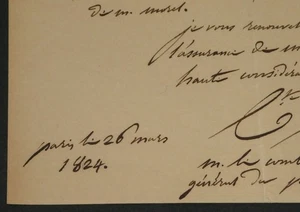 de m. morel.
je vous renouvel
l'assurance de m
haute considéra
paris le 26 mars
1824.
m. le comt
général du p